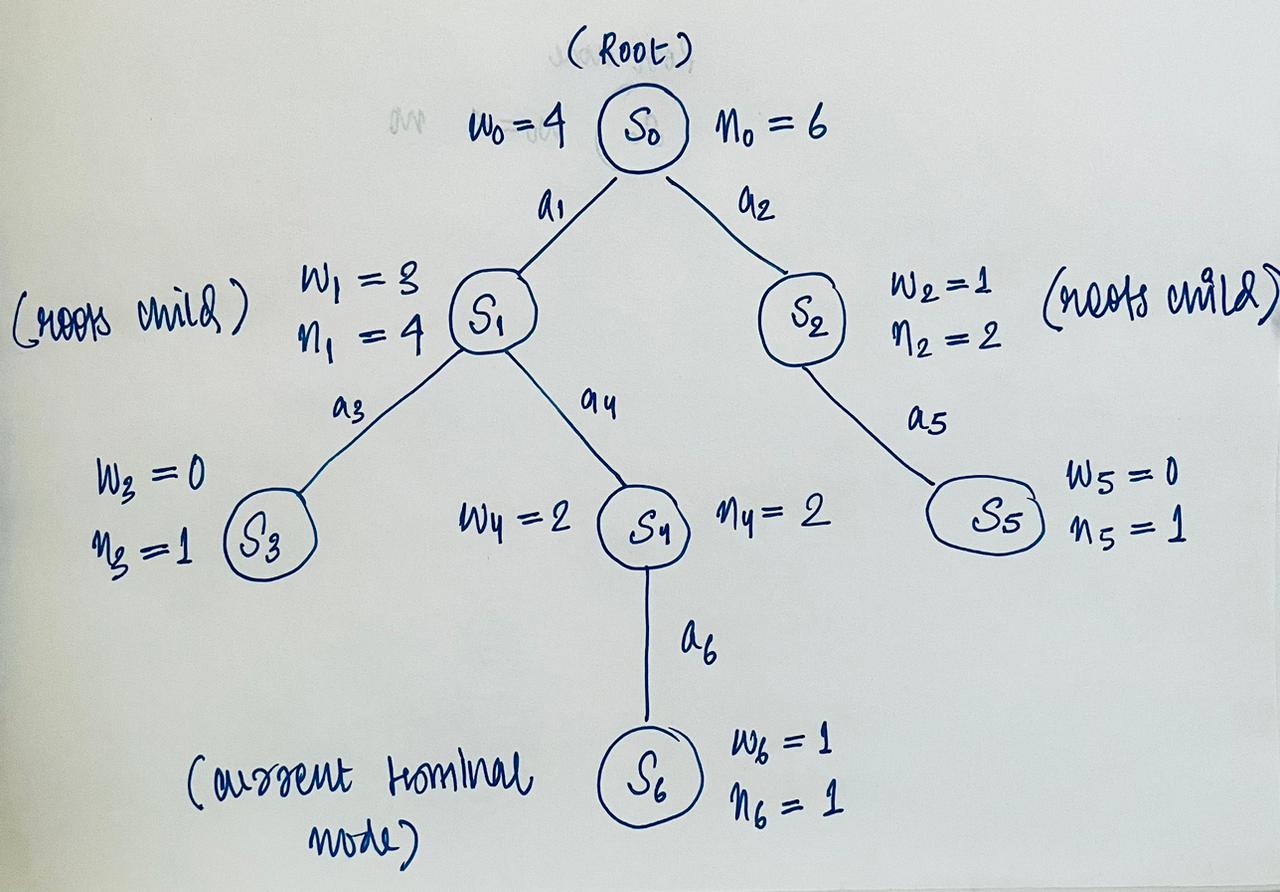 (Root)
W₀ = 4 S₀ n₀ = 6
a₁ a₂
(roots child) W₁ = 3 n₁ = 4 S₁
S₂ W₂ = 1 n₂ = 2 (roots child)
a₃ a₄ a₅
W₃ = 0
n₃ = 1 S₃
W₄ = 2 S₄ n₄ = 2
S₅ W₅ = 0
n₅ = 1
a₆
S₆ W₆ = 1
n₆ = 1
(current terminal
node)